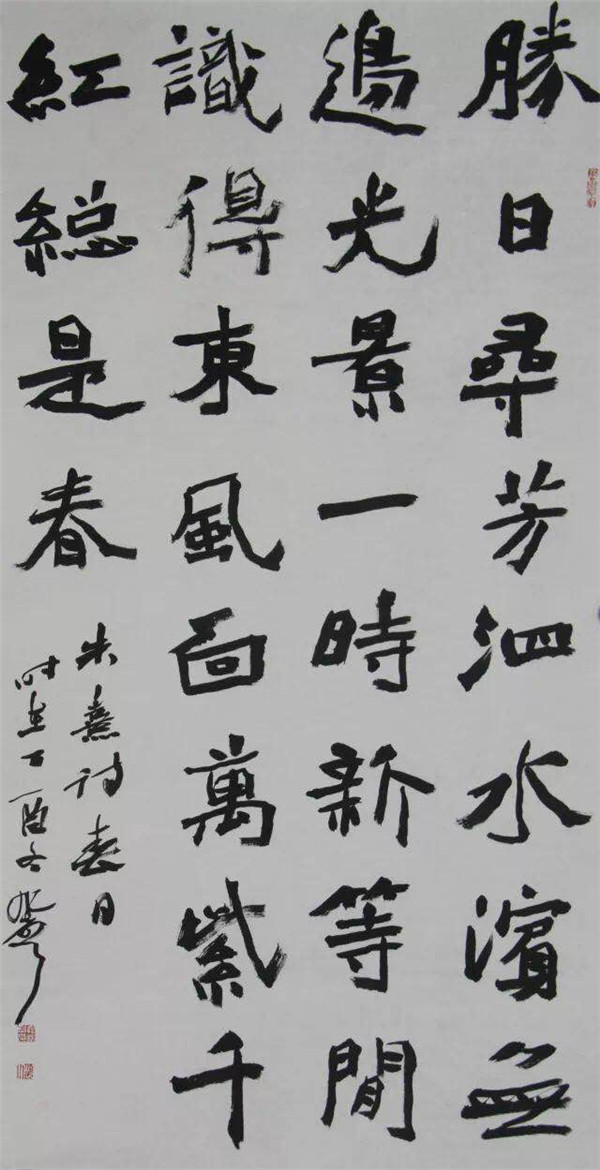 勝日尋芳泗水濱無
邊光景一時新等閒
識得東風面萬紫千
紅總是春
朱熹詩春日
时在丁酉冬